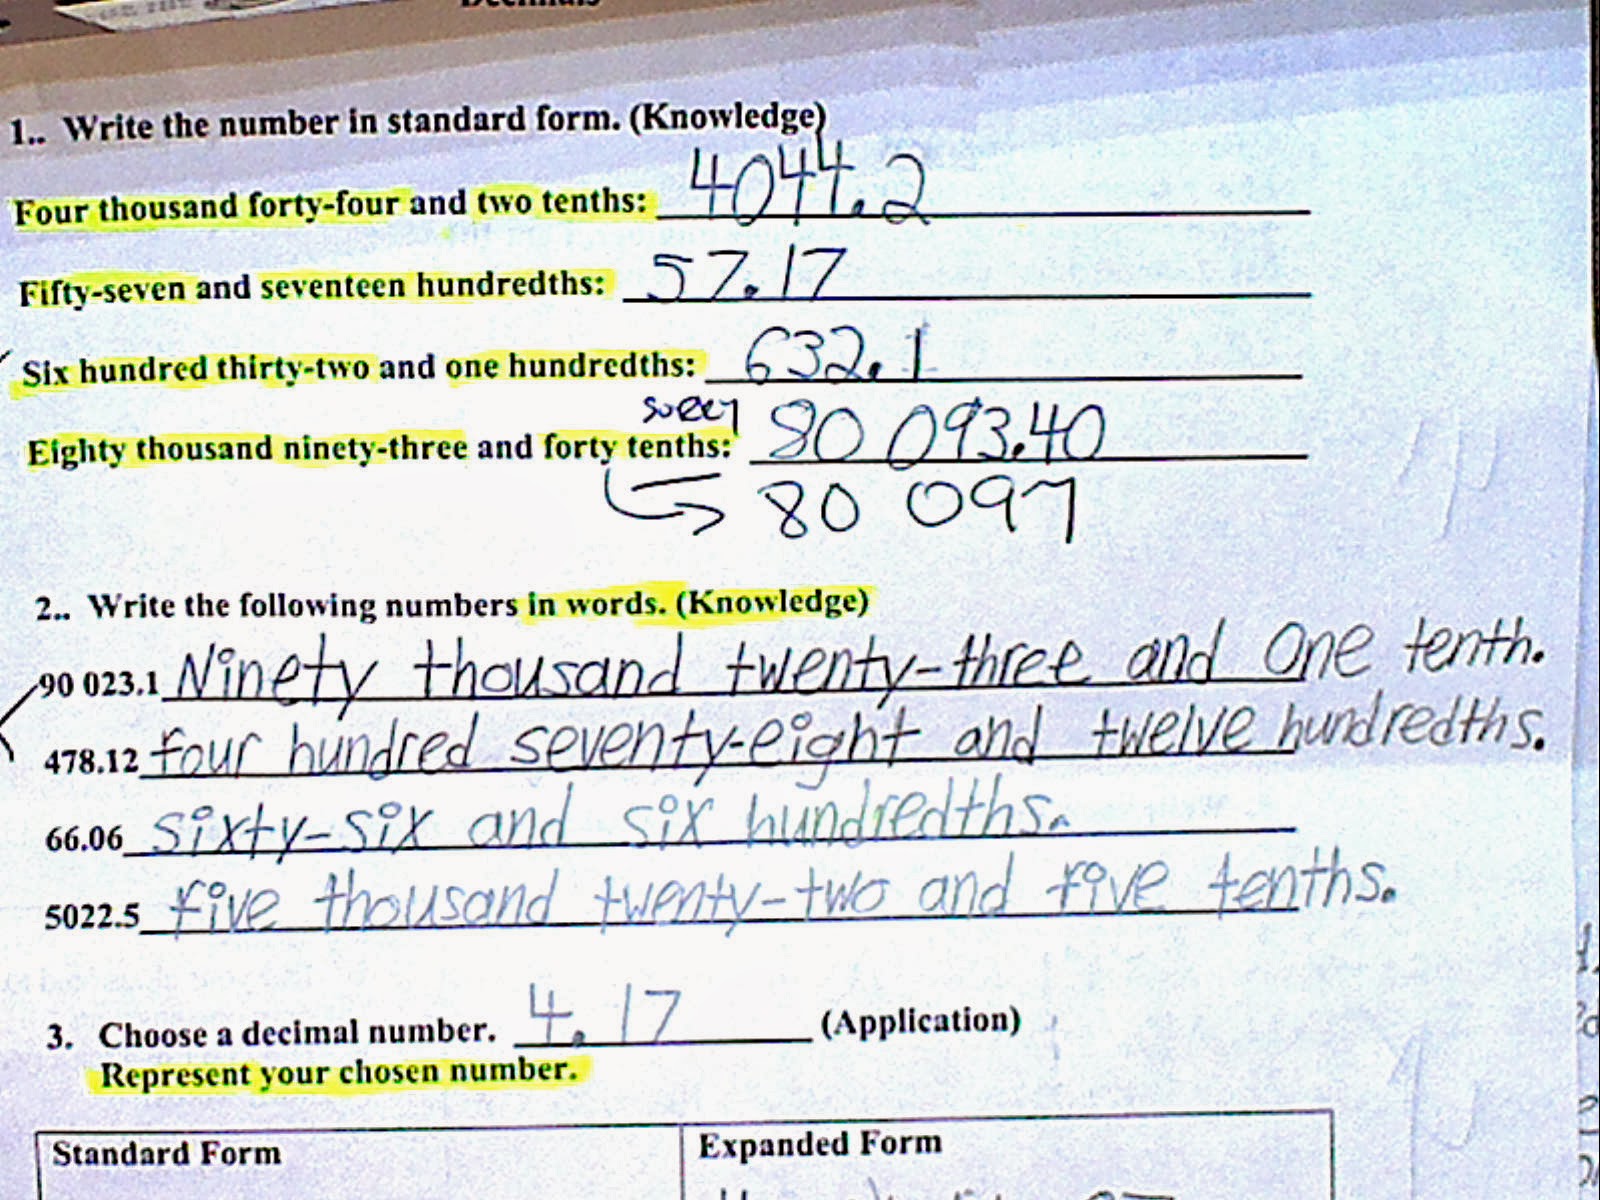 1.. Write the number in standard form. (Knowledge)
Four thousand forty-four and two tenths: 4044.2
Fifty-seven and seventeen hundredths: 57.17
Six hundred thirty-two and one hundredths: 632.1
Eighty thousand ninety-three and forty tenths: 80 093.40
80 097
2.. Write the following numbers in words. (Knowledge)
90 023.1 Ninety thousand twenty-three and One tenth.
478.12 four hundred seventy-eight and twelve hundredths.
66.06 sixty-six and six hundredths.
5022.5 five thousand twenty-two and five tenths.
3. Choose a decimal number. 4.17 (Application)
Represent your chosen number.
Standard Form
Expanded Form